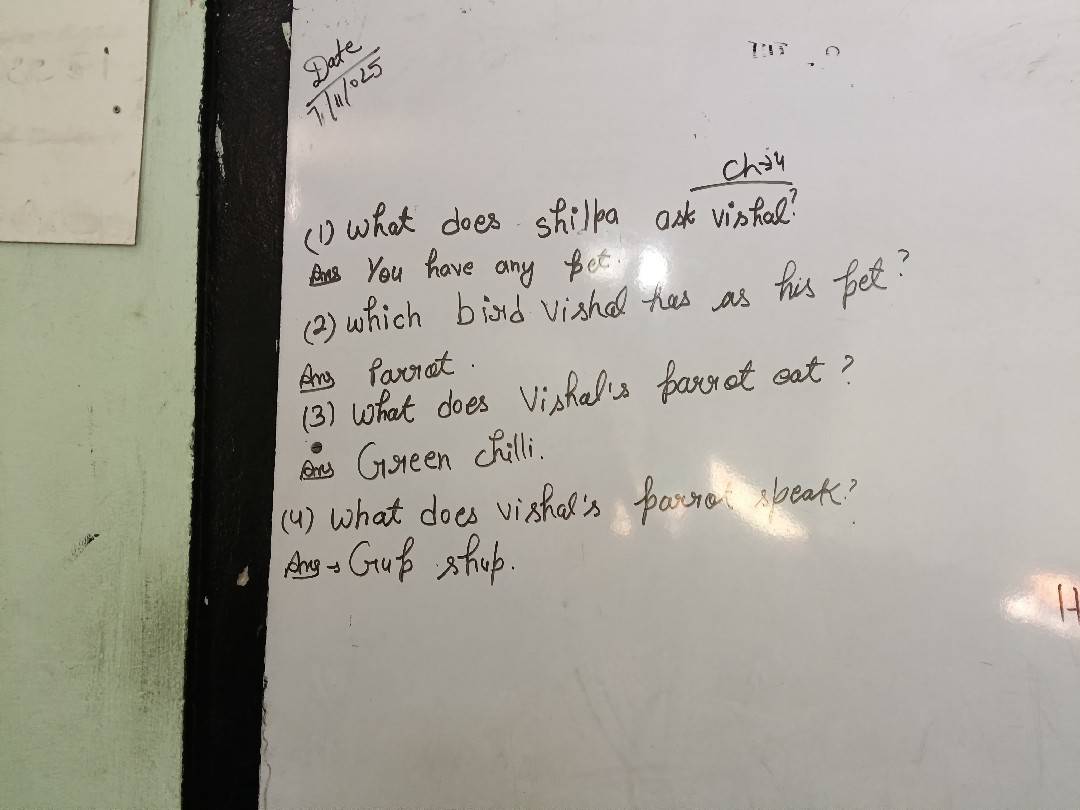 Date
7/11/025
Ch→4
(1) What does shilpa ask vishal?
Ans You have any pet.
(2) which bird vishal has as his pet?
Ans Parrot.
(3) What does Vishal's parrot eat?
Ans Green chilli.
(4) What does vishal's parrot speak?
Ans → Gup shup.